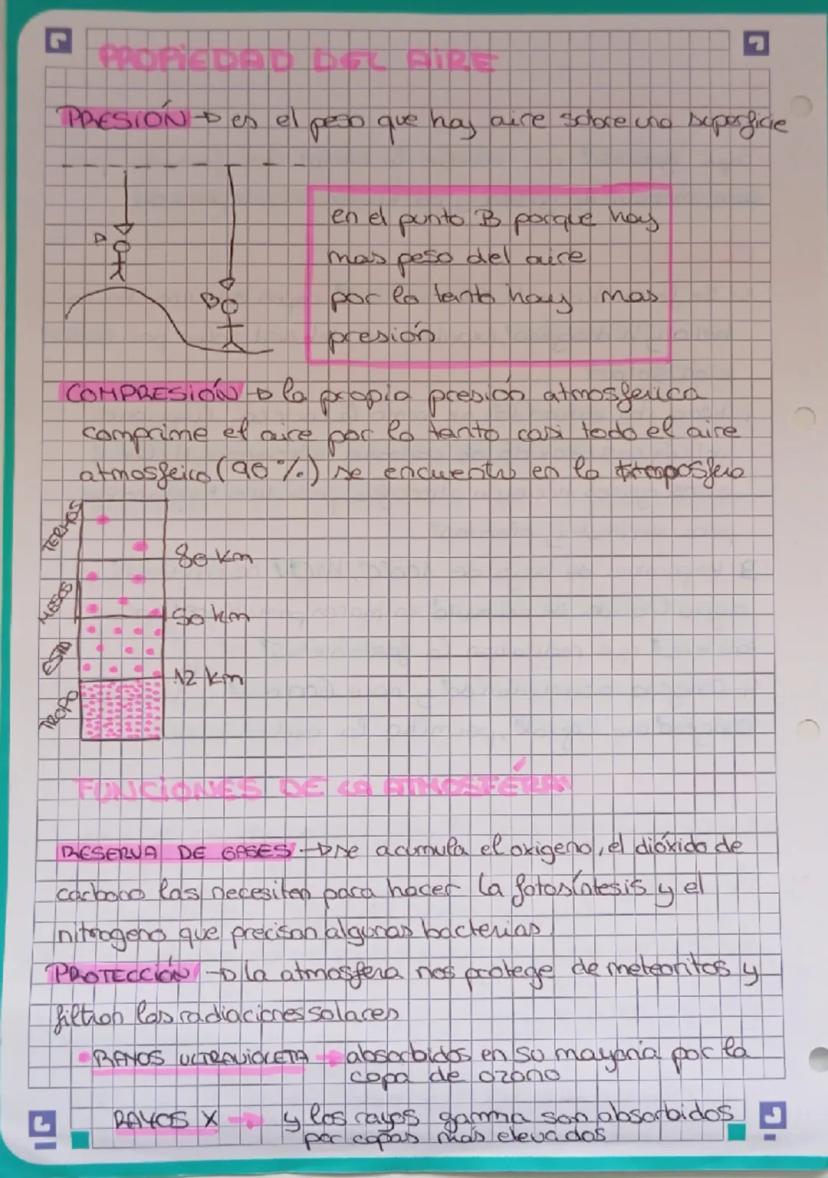 PROPIEDAD DEL AIRE
PRESIÓN → es el peso que hay aire sobre una superficie
A
B
en el punto B porque hay
mas peso del aire
por lo tanto hay mas
presión
COMPRESIÓN → la propia presión atmosferica
comprime el aire por lo tanto casi todo el aire
atmosfeico (90%) se encuentra en la
TERMOS
80 km
MESOS
50 km
ESTR
12 km
TROPO
FUNCIONES DE LA ATMOSFÉRA
RESERVA DE GASES → se acumula el oxigeno, el dióxido de
carbono las necesiten para hacer la fotosíntesis y el
nitrogeno que precisan algunas bacterias
PROTECCIÓN → la atmosfera nos protege de meteoritos y
filtran las radiaciones solares
RAYOS ULTRAVIOLETA → absorbidos en su mayoría por la
capa de ozono
RAYOS X → y los rayos gamma son absorbidos
por capas más elevados